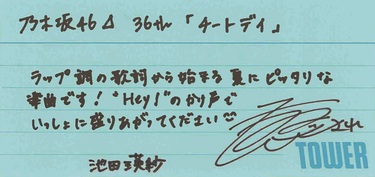 乃木坂46⊿ 36th「チートデイ」
ラップ調の歌詞から始まる夏にピッタリな
楽曲です！“Hey!”のかけ声で
いっしょに盛りあがってください
池田瑛紗
TOWER